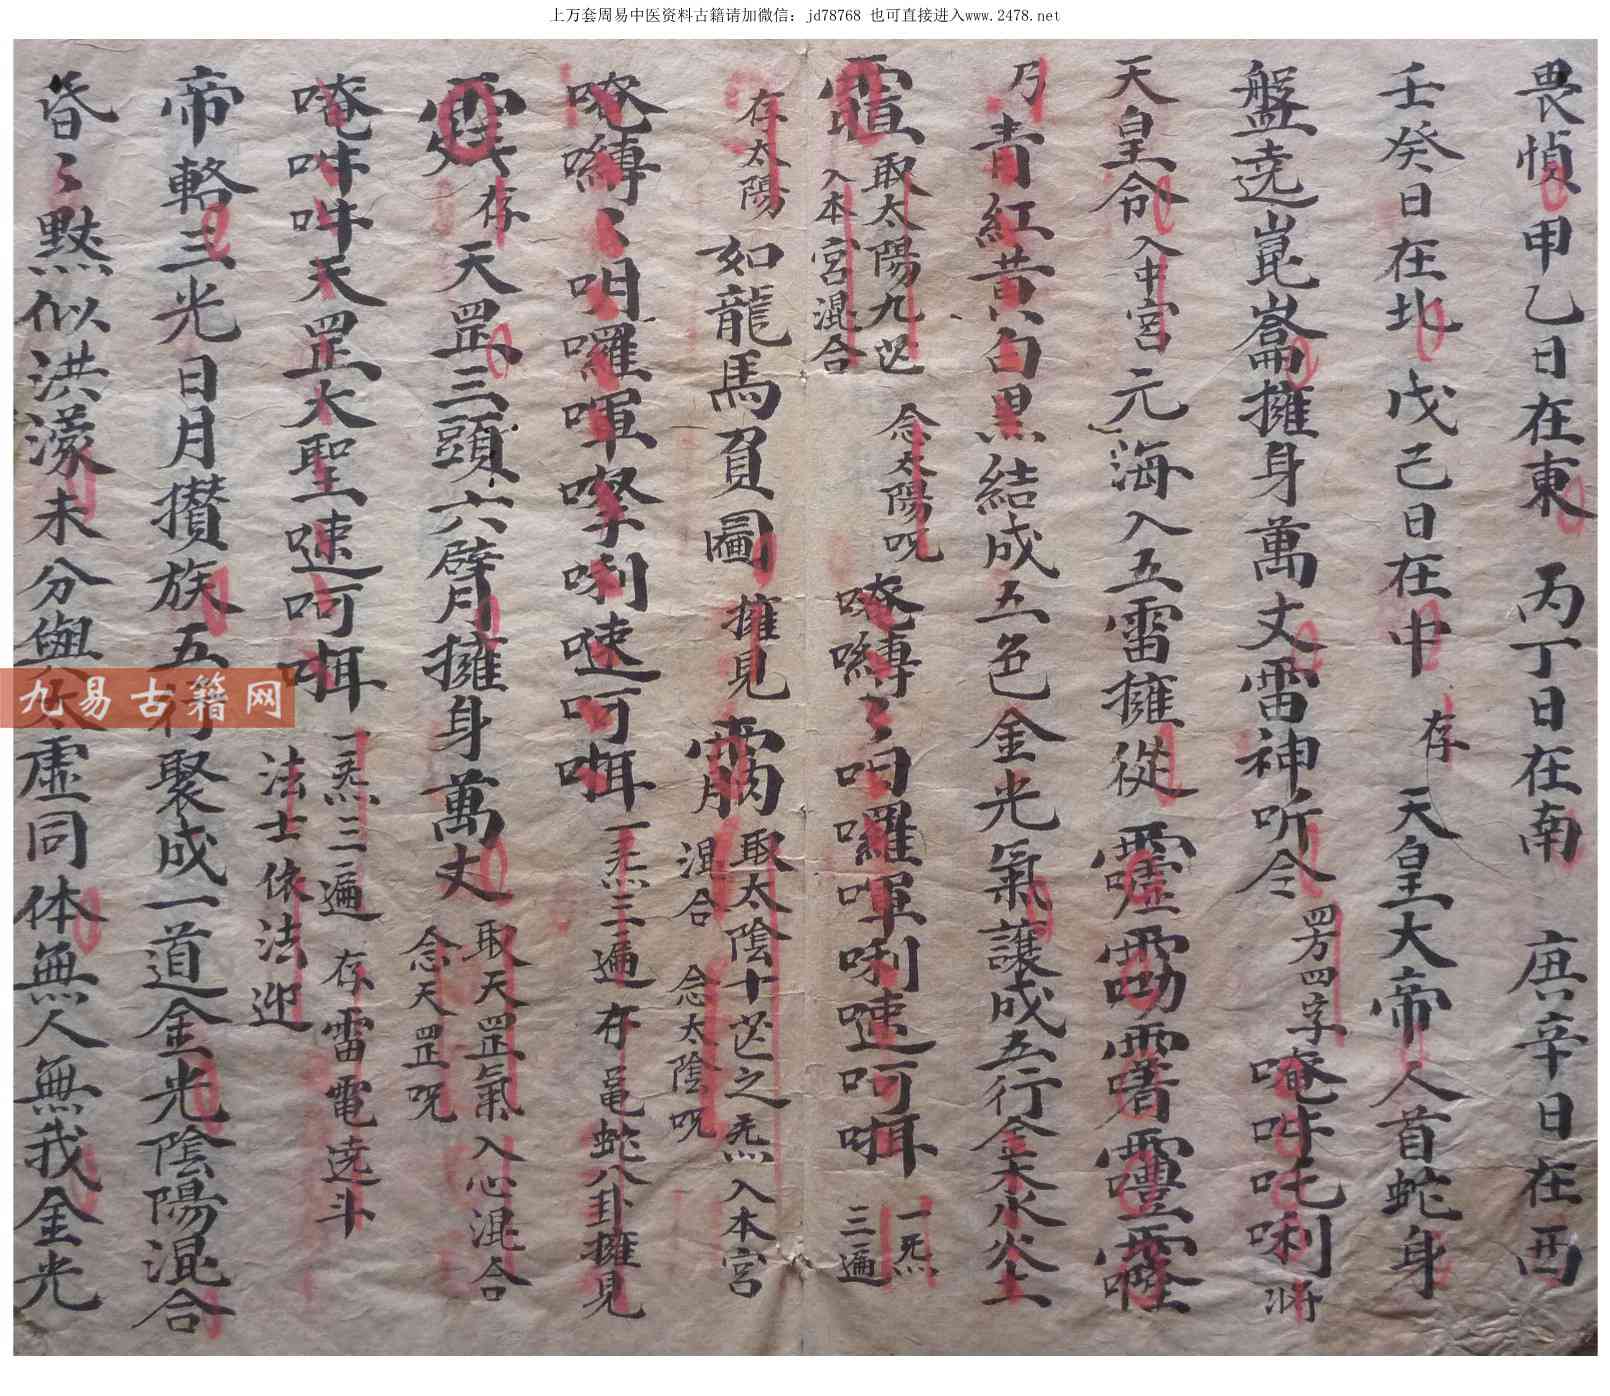 上万套周易中医资料古籍请加微信: jd78768 也可直接进入www.2478.net
畏愼甲乙日在東 丙丁日在南 庚辛日在西
壬癸日在北 戊己日在中 存 天皇大帝人首蛇身
盤遶崑崙擁身萬丈雷神听令 四方四字 唵吽吒唎 将
天皇令入中宮 元海入五雷擁從
乃青紅黄白黒結成五色金光氣讓成五行金木水火土
取太陽九芒
入本宮混合
念太陽呪
囉嗱唎速呵
一炁
三遍
存太陽 如龍馬負圖 擁見
取太陰十芒之炁入本宮
混合 念太陰呪
囉唎速呵 一炁三遍 存黾蛇八卦擁見
存天罡三頭六臂擁身萬丈
取天罡氣入心混合
念天罡呪
唵吽吽天罡大聖速呵
一炁三遍 存雷電遶斗
法士依法迎
帝輅三光日月攢族五行聚成一道金光陰陽混合
昏々黙似洪濛未分與太虛同体無人無我金光
九易古籍网